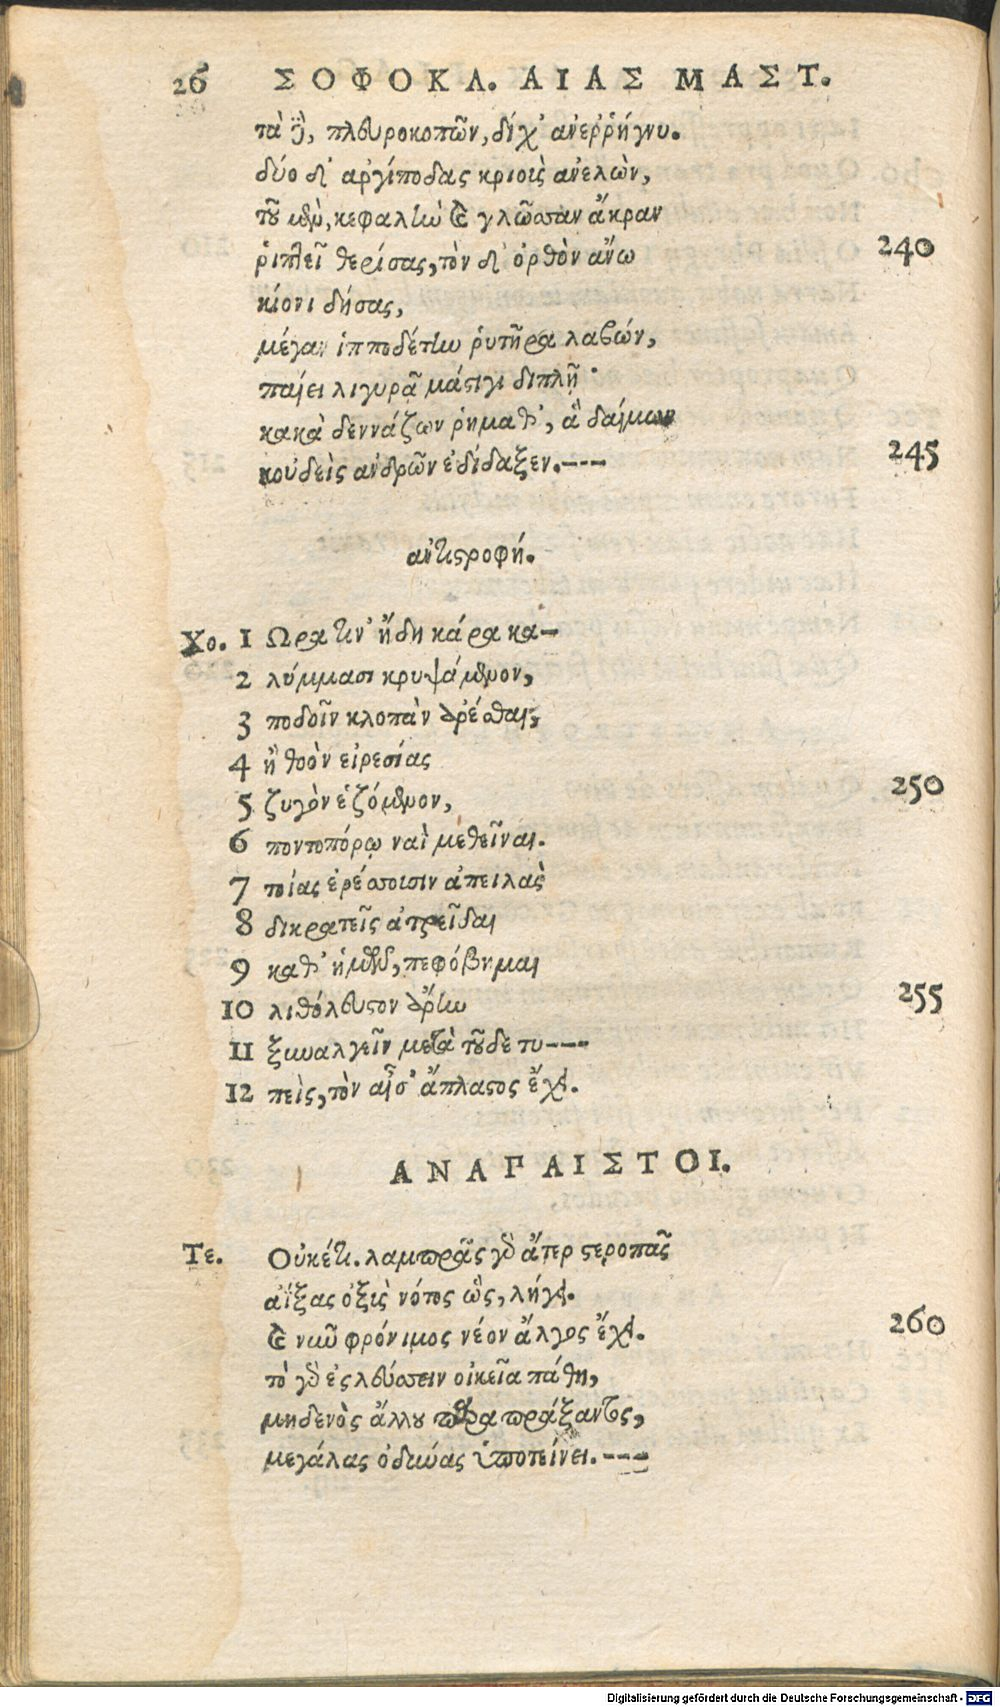 26 ΣΟΦΟΚΛ. ΑΙΑΣ ΜΑΣΤ.
τὰ δὲ, πλευροκοπῶν, δίχ' ἀνεῤῥήγνυ.
δύο δ' ἀργίποδας κριοὺς ἀνελὼν,
τοῦ μὲν, κεφαλὴν καὶ γλῶσσαν ἄκραν
ῥιπτεῖ θερίσας, τὸν δ' ὀρθὸν ἄνω 240
κίονι δήσας,
μέγαν ἱπποδέτην ῥυτῆρα λαβών,
παίει λιγυρᾷ μάστιγι διπλῇ·
κακὰ δεννάζων ῥήμαθ', ἃ δαίμων
κοὐδεὶς ἀνδρῶν ἐδίδαξεν.--- 245
ἀντιστροφή.
Χο. 1 Ὥρα τιν' ἤδη κάρα κα-
2 λύμμασι κρυψάμενον,
3 ποδοῖν κλοπὰν ἀρέσθαι,
4 ἢ θοὸν εἰρεσίας
5 ζυγὸν ἑζόμενον, 250
6 ποντοπόρῳ ναῒ μεθεῖναι.
7 τοίας ἐρέσσουσιν ἀπειλὰς
8 δικρατεῖς ἀτρεῖδαι
9 καθ' ἡμῶν, πεφόβημαι
10 λιθόλευστον ἄρην 255
11 ξυναλγεῖν μετὰ τοῦδε τυ---
12 πεὶς, τὸν αἶσ' ἄπλαστος ἔχει.
ΑΝΑΠΑΙΣΤΟΙ.
Τε. Οὐκέτι. λαμπρᾶς γὰρ ἄτερ στεροπᾶς
ἀΐξας ὀξὺς νότος ὣς, λήγει.
καὶ νῦν φρόνιμος νέον ἄλγος ἔχει. 260
τὸ γὰρ ἐςλεύσσειν οἰκεῖα πάθη,
μηδενὸς ἄλλου παραπράξαντος,
μεγάλας ὀδύνας ὑποτείνει.---
Digitalisierung gefördert durch die Deutsche Forschungsgemeinschaft - DFG